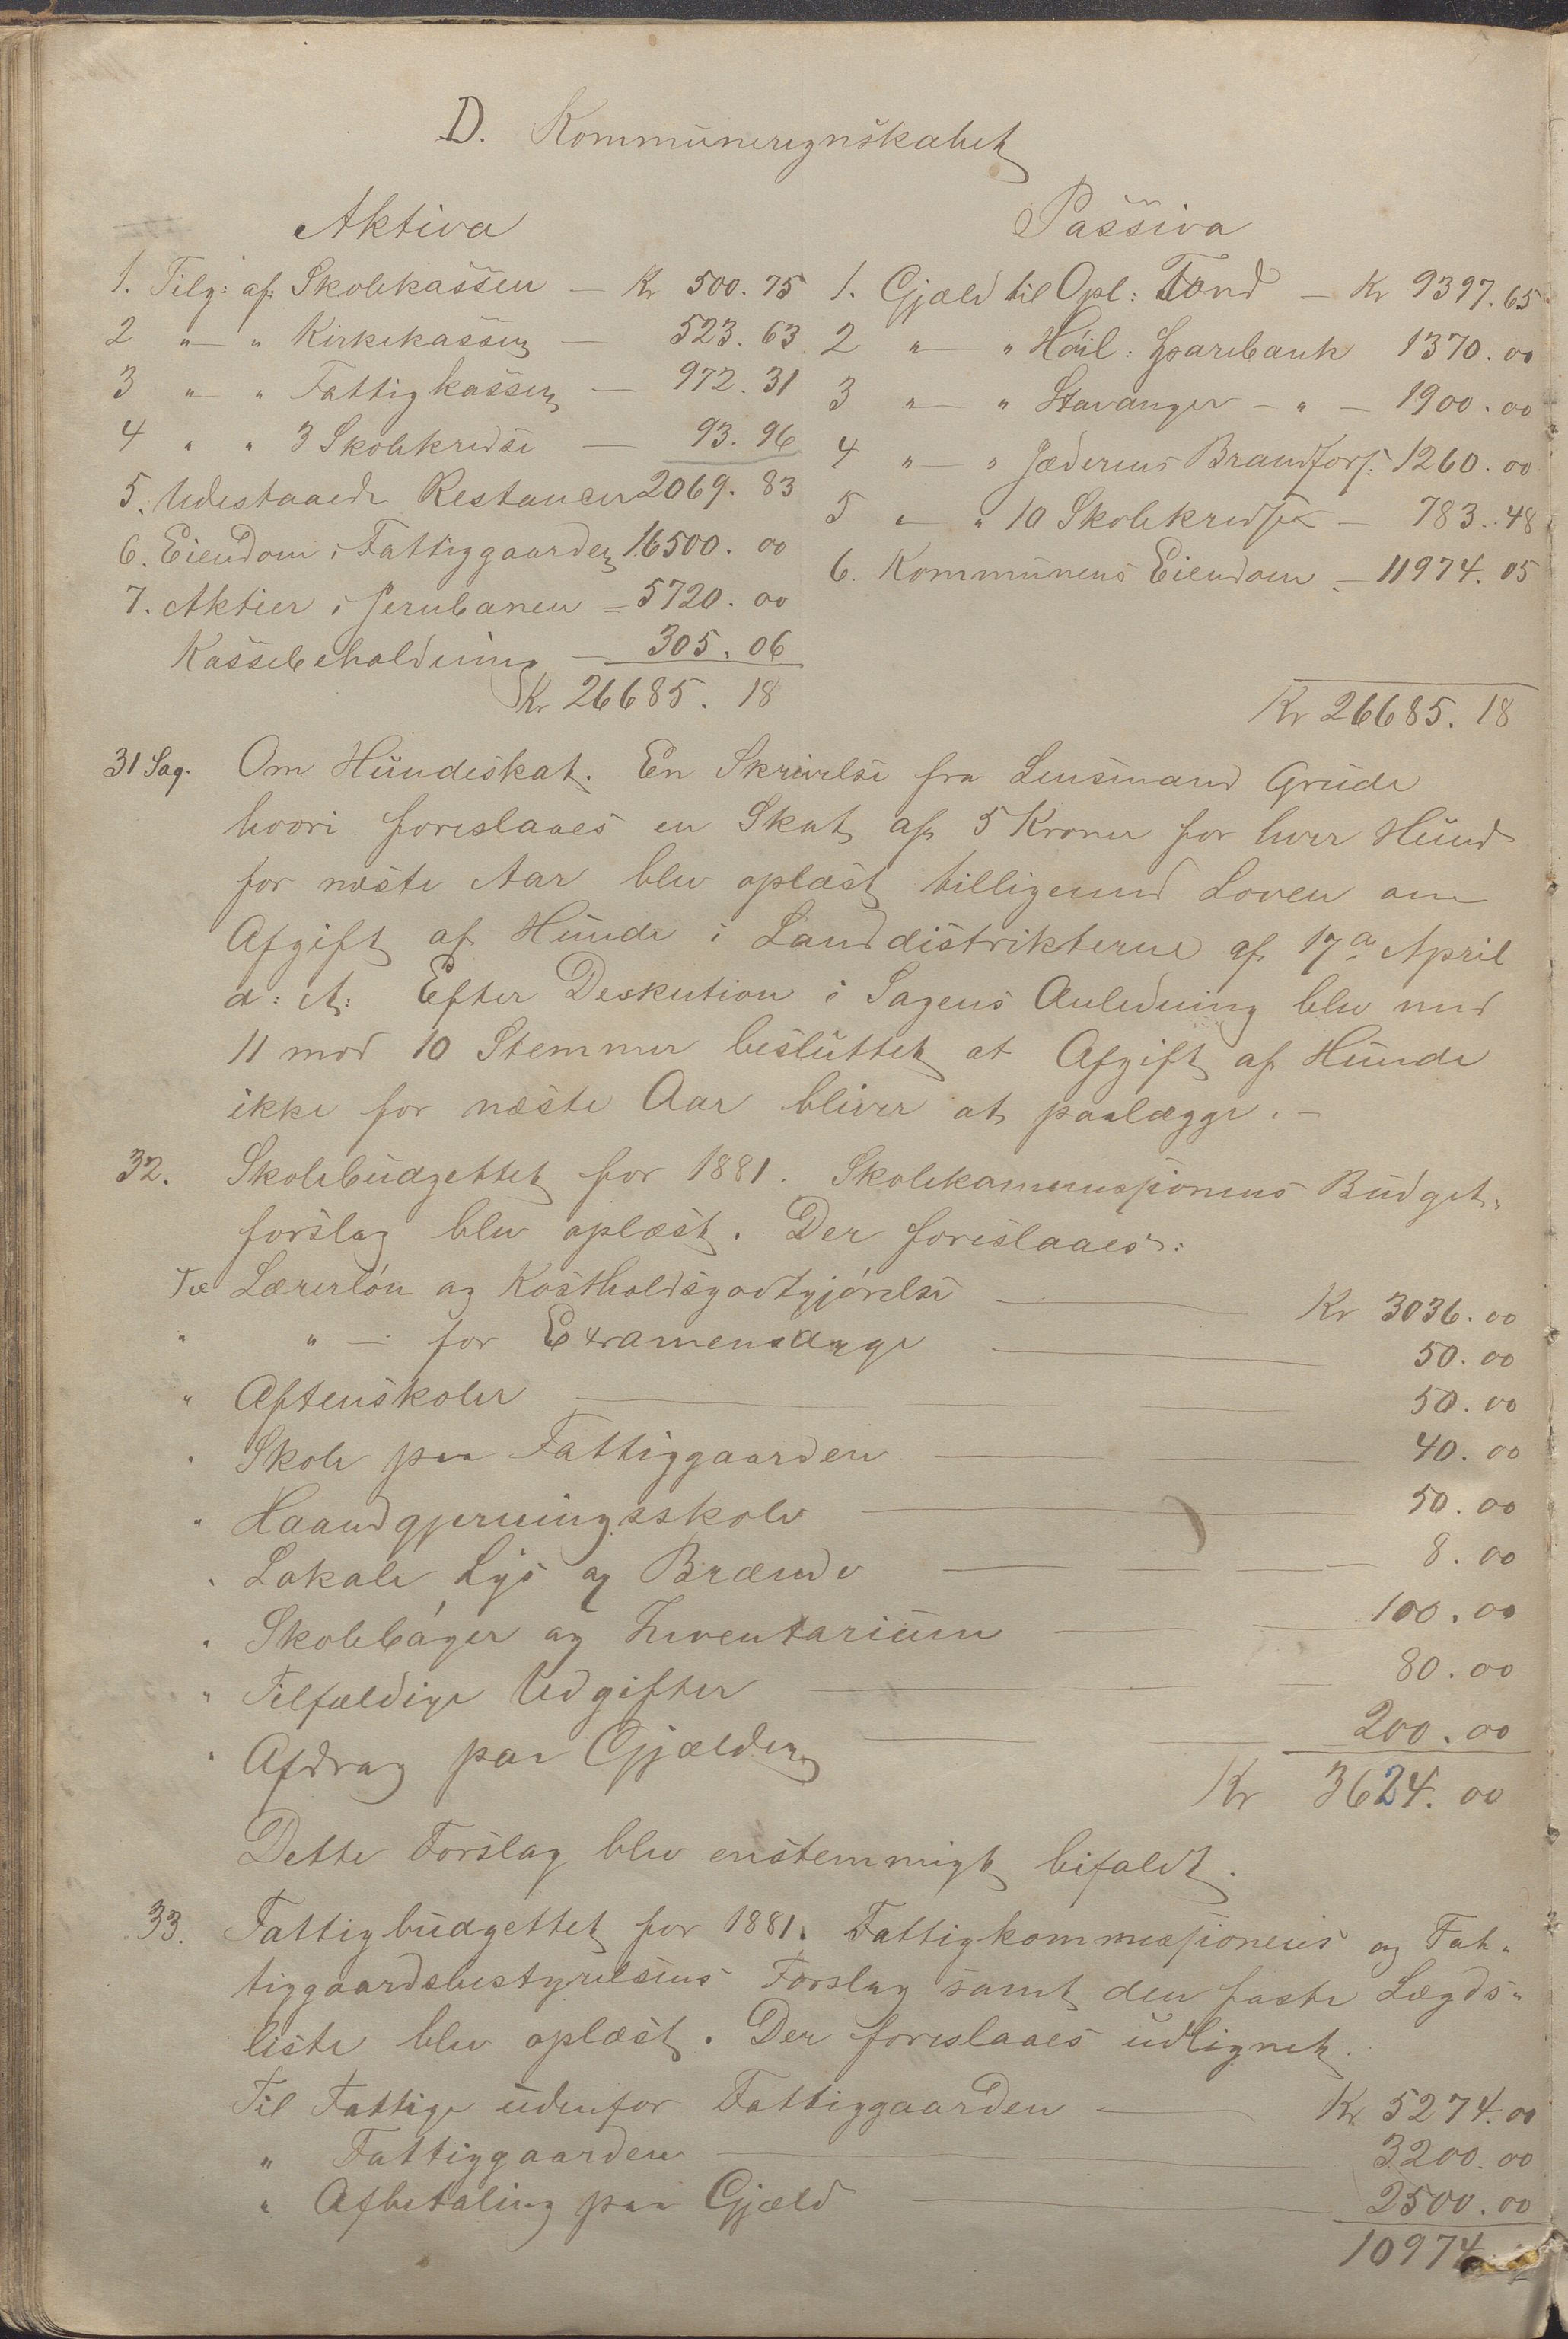 D. Kommuneregnskabet
Aktiva
1. Tilg: af: Skolekassen — Kr 500.75
2 „ — „ Kirkekassen — 523.63
3 „ — „ Fattigkassen — 972.31
4 „ „ 3 Skolekredse — 93.96
5. Udestaaede Restancer 2069.83
6. Eiendom i Fattiggaarden 16500.00
7. Aktier i Jernbanen = 5720.00
Kassebeholdning — 305.06
Kr 26685.18
Passiva
1. Gjæld til Opl: Fond — Kr 9397.65
2 „ — „ Høil: Sparebank 1370.00
3 „ — „ Stavanger — „ — 1900.00
4 „ — „ Jæderens Brandfors: 1260.00
5 „ — „ 10 Skolekredse — 783.48
6. Kommunens Eiendom — 11974.05
Kr 26685.18
31 Sag. Om Hundeskat. En Skrivelse fra Lensmand Grude
hvori foreslaaes en Skat af 5 Kroner for hver Hund
for næste Aar blev oplæst tilligemed Loven om
Afgift af Hunde i Landdistrikterne af 17de April
d: A: Efter Deskution i Sagens Anledning blev med
11 mod 10 Stemmer besluttet at Afgift af Hunde
ikke for næste Aar bliver at paalægge. —
32. Skolebudgettet for 1881. Skolekommissionens Budget-
forslag blev oplæst. Der foreslaaes:
Til Lærerløn og Kostholdsgodtgjørelse — Kr 3036.00
„ „ — for Examensdage — 50.00
„ Aftenskoler — 50.00
„ Skole paa Fattiggaarden — 40.00
„ Haandgjerningsskole — 50.00
„ Lokale Lys og Brænde — 8.00
„ Skolebøger og Inventarium — 100.00
„ Tilfældige Udgifter — 80.00
„ Afdrag paa Gjælden — 200.00
Kr 3624.00
Dette Forslag blev enstemmigt bifaldt.
33. Fattigbudgettet for 1881. Fattigkommissionens og Fat-
tiggaardsbestyrelsens Forslag samt den faste Lægds-
liste blev oplæst. Der foreslaaes udlignet.
Til Fattige udenfor Fattiggaarden — Kr 5274.00
„ Fattiggaarden — 3200.00
„ Afbetaling paa Gjæld — 2500.00
10974